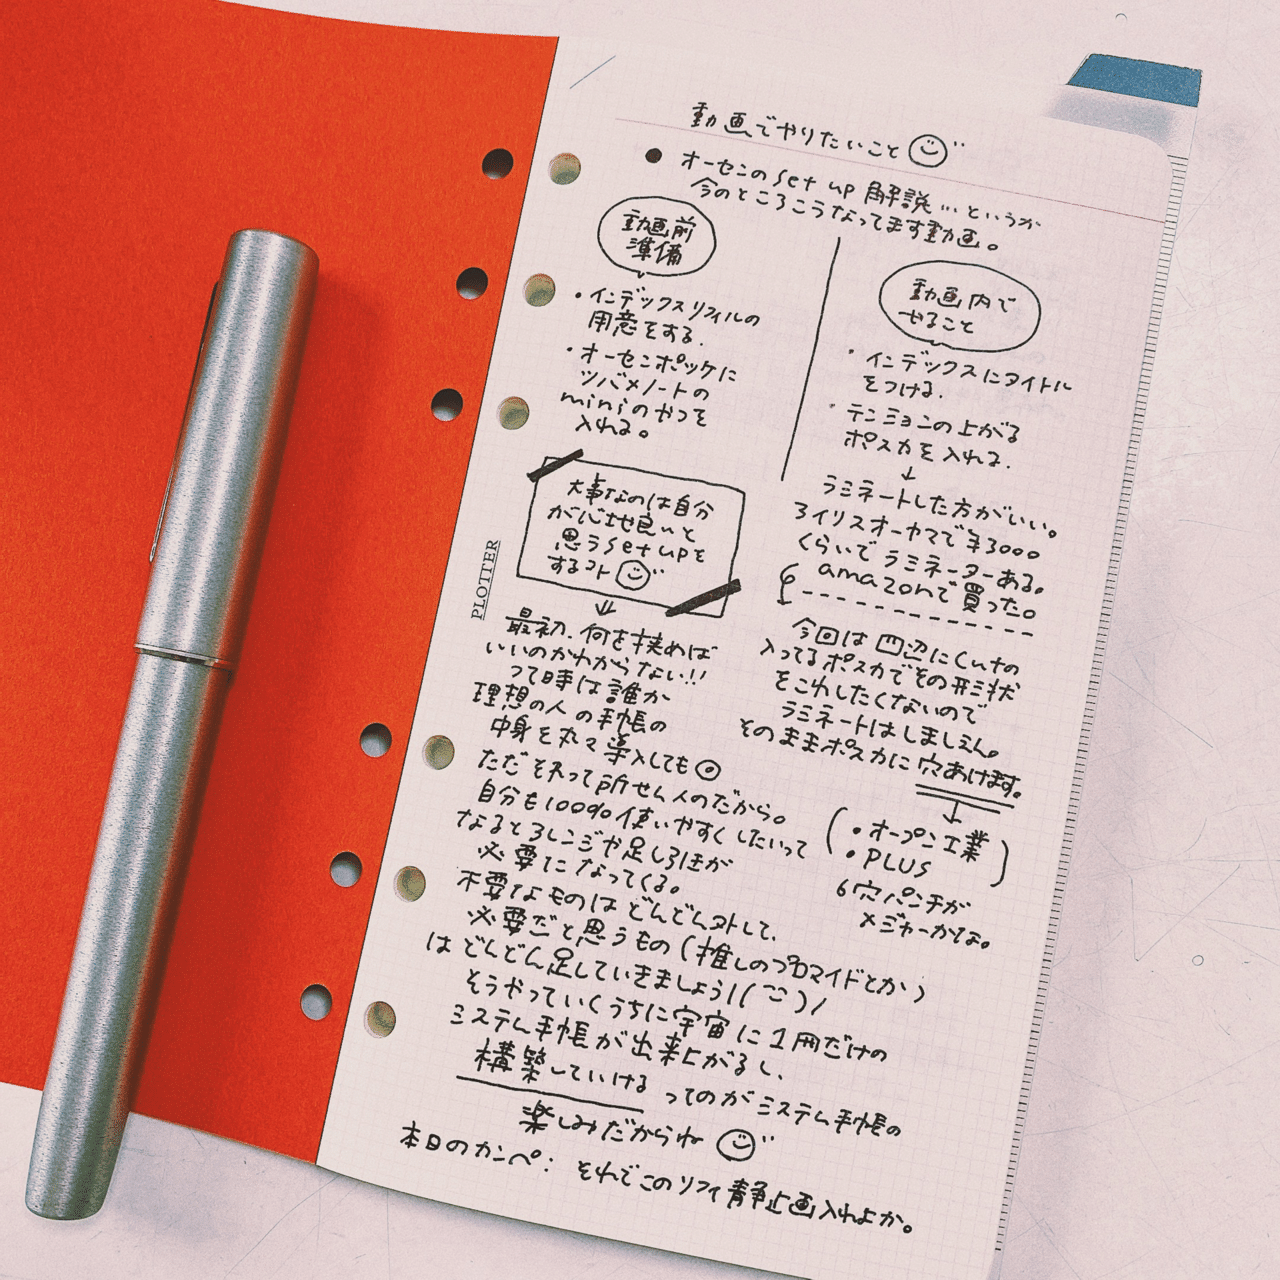 動画でやりたいこと
● オーセンのset up 解説…というか
今のところこうなってます動画。
動画前
準備
・インデックスリフィルの
用意をする.
・オーセンポッケに
ツバメノートの
miniのやつを
入れる。
大事なのは自分
が心地良いと
思うset upを
するコト
最初、何を挟めば
いいのかわからない!!
って時は誰か
理想の人の手帳の
中身を丸々導入しても◎
ただそれって所せん人のだから。
自分も100%使いやすくしたいって
なるとアレンジや足し引きが
必要になってくる。
不要なものはどんどん外して、
必要だと思うもの(推しのブロマイドとか)
はどんどん足していきましょう!
そうやっていくうちに宇宙に1冊だけの
システム手帳が出来上がるし、
構築していける ってのがシステム手帳の
楽しみだからね
本日のカンペ: それでこのリフィ静止画入れよか。
動画内で
やること
・インデックスにタイトル
をつける.
・テンションの上がる
ポスカを入れる.
↓
ラミネートした方がいい。
アイリスオーヤマで¥3000
くらいでラミネーターある。
amazonで買った。
今回は四辺にcutの
入ってるポスカでその形状
をこわしたくないので
ラミネートはしましぇん。
そのままポスカに穴あけます。
↓
・オープン工業
・PLUS
6穴パンチが
メジャーかな。
PLOTTER